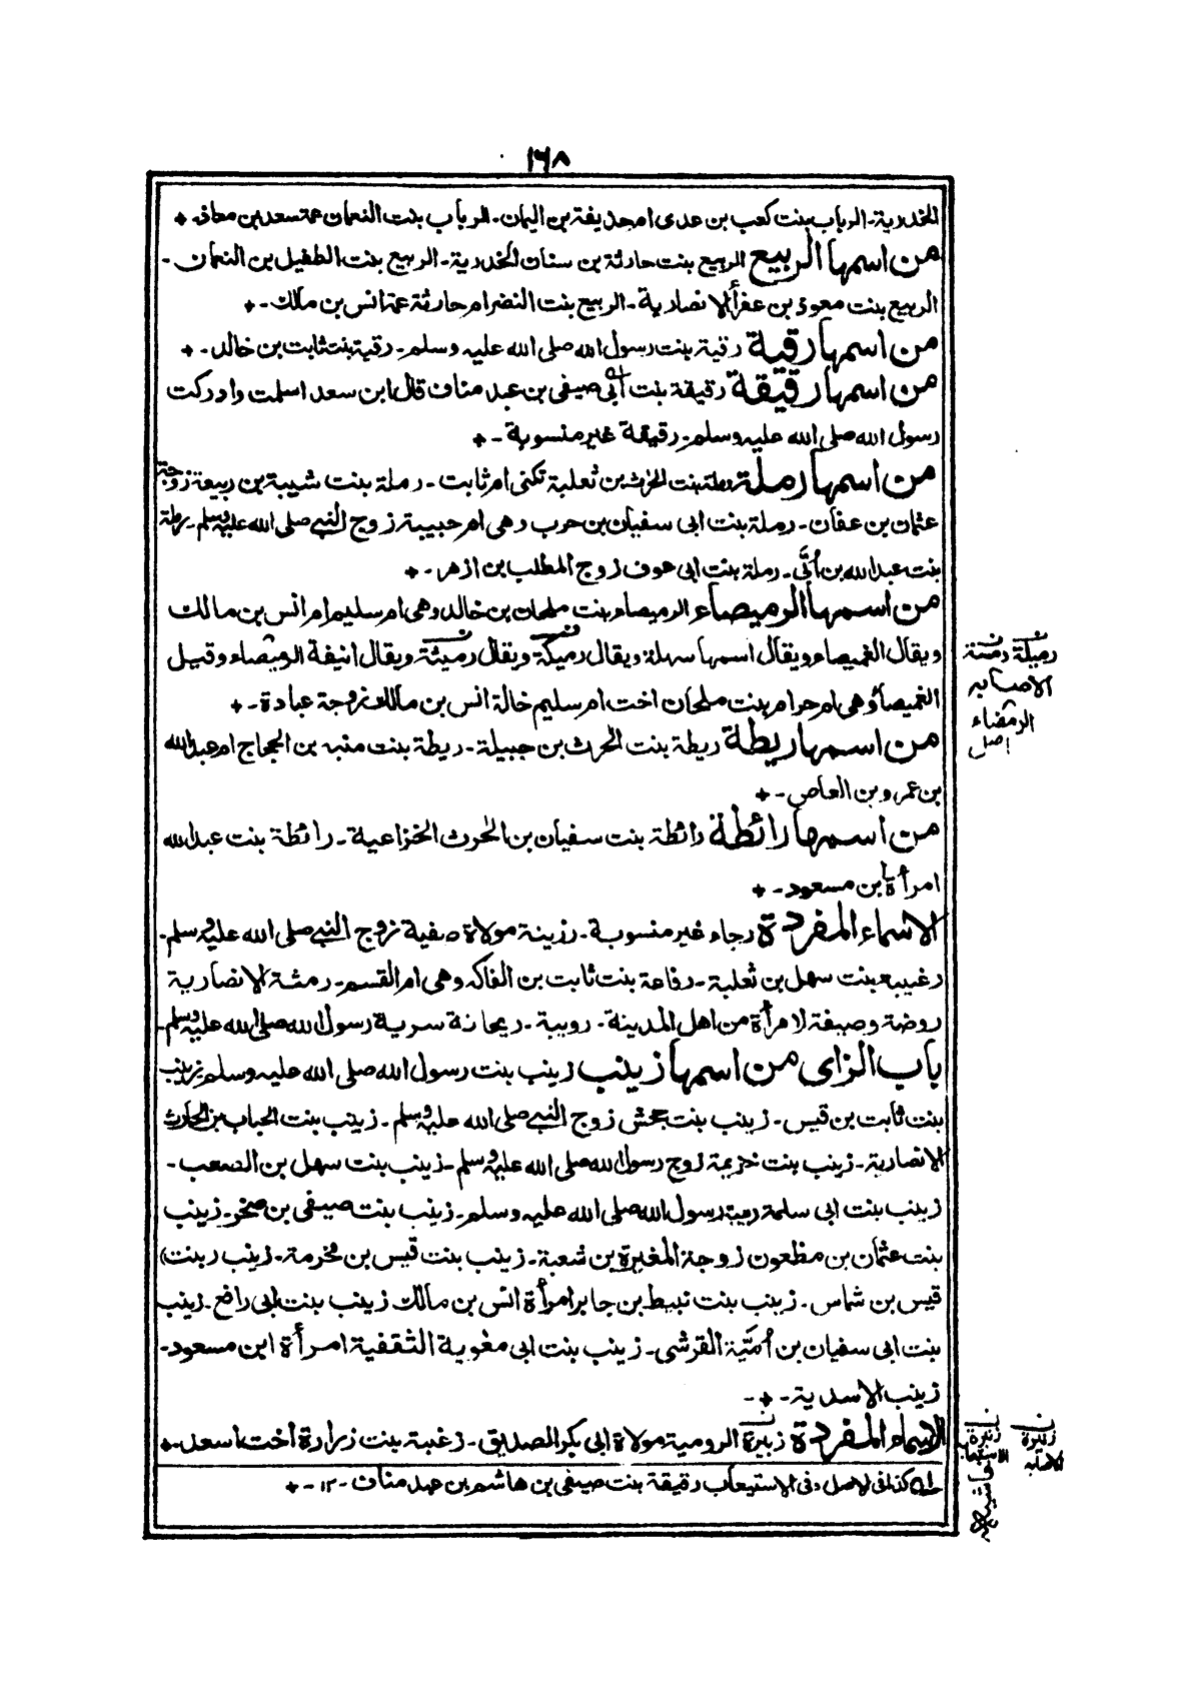 ١٦٨
الخدرية- الرباب بنت كعب بن عدى ام حذيفة بن اليمان- الرباب بنت النعمان عمة سعد بن معاذ +
من اسمها الربيع الربيع بنت حارثة بن سنان الخدرية- الربيع بنت الطفيل بن النعمان-
الربيع بنت معوذ بن عفرأ الانصارية- الربيع بنت النضر ام حارثة عمة انس بن ملك- +
من اسمها رقية رقية بنت رسول الله صلى الله عليه وسلم- رقية بنت ثابت بن خالد- +
من اسمها رقيقة رقيقة بنت ابى صيفى بن عبد مناف قال ابن سعد اسلمت وادركت
رسول الله صلى الله عليه وسلم- رقيقة غير منسوبة- +
من اسمها رملة رملة بنت الحرث بن ثعلبة تكنى ام ثابت- رملة بنت شيبة بن ربيعة زوجة
عثمان بن عفان- رملة بنت ابى سفيان بن حرب وهى ام حبيبة زوج النبى صلى الله عليه وسلم- رملة
بنت عبد الله بن أُبَّى- رملة بنت ابى عوف زوج المطلب بن ازهر- +
من اسمها الرميصاء الرميصاء بنت ملحان بن خالد وهى ام سليم ام انس بن مالك
ويقال الغميصاء ويقال اسمها سهلة ويقال رميكة ويقال رميثة ويقال انيفة الرميصاء وقيل
الغميصاء وهى ام حرام بنت ملحان اخت ام سليم خالة انس بن مالك زوجة عبادة- +
من اسمها ريطة ريطة بنت الحرث بن جبيلة- ريطة بنت منبه بن الحجاج ام عبد الله
بن عمرو بن العاص- +
من اسمها رائطة رائطة بنت سفيان بن الحرث الخزاعية- رائطة بنت عبد الله
امرأة ابن مسعود- +
الاسماء المفردة رجاء غير منسوبة- رزينة مولاة صفية زوج النبى صلى الله عليه وسلم-
رغيبة بنت سهل بن ثعلبة- رفاعة بنت ثابت بن الفاكه وهى ام القسم- رمثة الانصارية
روضة وصيفة لامرأة من اهل المدينة- روبية- ريحانة سرية رسول الله صلى الله عليه وسلم-
باب الزاى من اسمها زينب زينب بنت رسول الله صلى الله عليه وسلم- زينب
بنت ثابت بن قيس- زينب بنت جحش زوج النبى صلى الله عليه وسلم- زينب بنت الحباب بن الحارث
الانصارية- زينب بنت خزيمة زوج رسول الله صلى الله عليه وسلم- زينب بنت سهل بن الصعب-
زينب بنت ابى سلمة ربيبة رسول الله صلى الله عليه وسلم- زينب بنت صيفى بن صخر- زينب
بنت عثمان بن مظعون زوجة المغيرة بن شعبة- زينب بنت قيس بن مخرمة- زينب (بنت)
قيس بن شماس- زينب بنت نبيط بن جابر امرأة انس بن مالك زينب بنت ابى رافع- زينب
بنت ابى سفيان بن أُميّة القرشى- زينب بنت ابى مغوية الثقفية امرأة ابن مسعود-
زينب الاسدية- + -
الاسماء المفردة زنيرة الرومية مولاة ابى بكر الصديق- زغيبة بنت زرارة اخت اسعد- +
كذا فى الاصل وفى الاستيعاب رقيقة بنت صيفى بن هاشم بن عبد مناف- ١٢- +
ن رميكة ن رمثة
الاصابه
الرمضاء
اصل
ن زنيرة
الاصابه
ن زنبرة
الاستيعاب